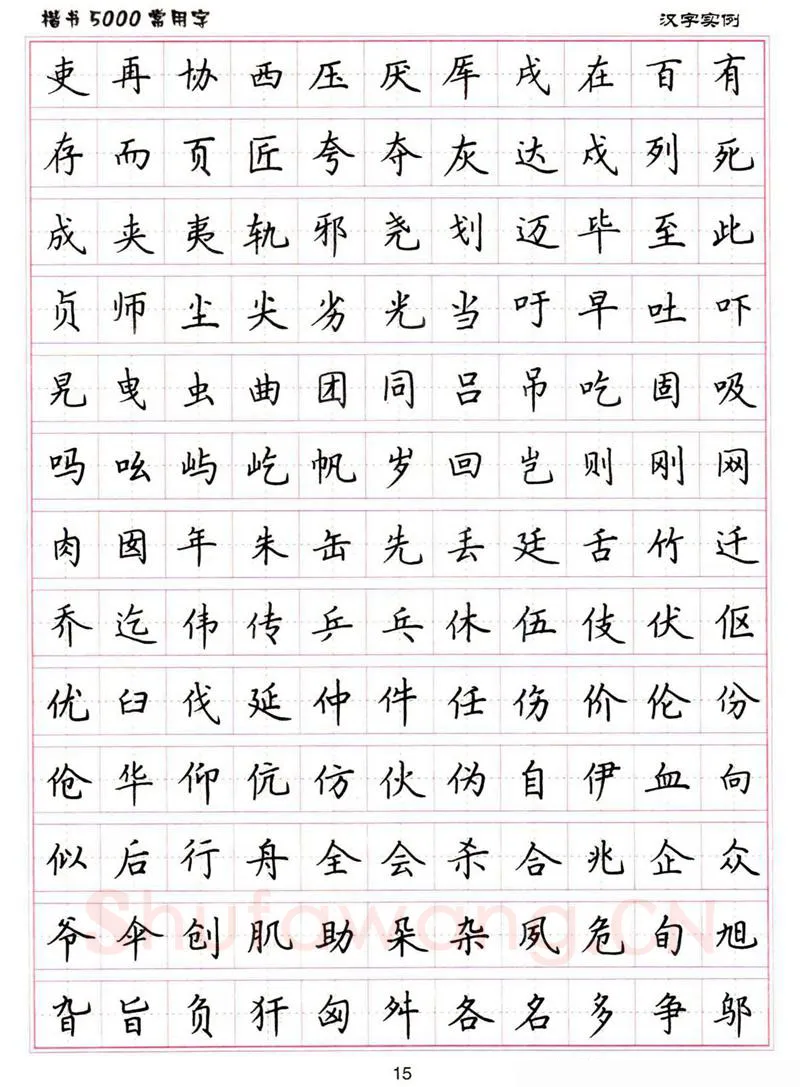 楷书5000常用字
汉字实例
吏再协西压厌厍戌在百有
存而页匠夸夺灰达戍列死
成夹夷轨邪尧划迈毕至此
贞师尘尖劣光当吁早吐吓
旯曳虫曲团同吕吊吃固吸
吗吆屿屹帆岁回岂则刚网
肉囡年朱缶先丢廷舌竹迁
乔迄伟传乒乓休伍伎伏伛
优臼伐延仲件任伤价伦份
伧华仰伉仿伙伪自伊血向
似后行舟全会杀合兆企众
爷伞创肌肋朵杂夙危旬旭
旮旨负犴匈舛各名多争邬
Shufawang.CN
15